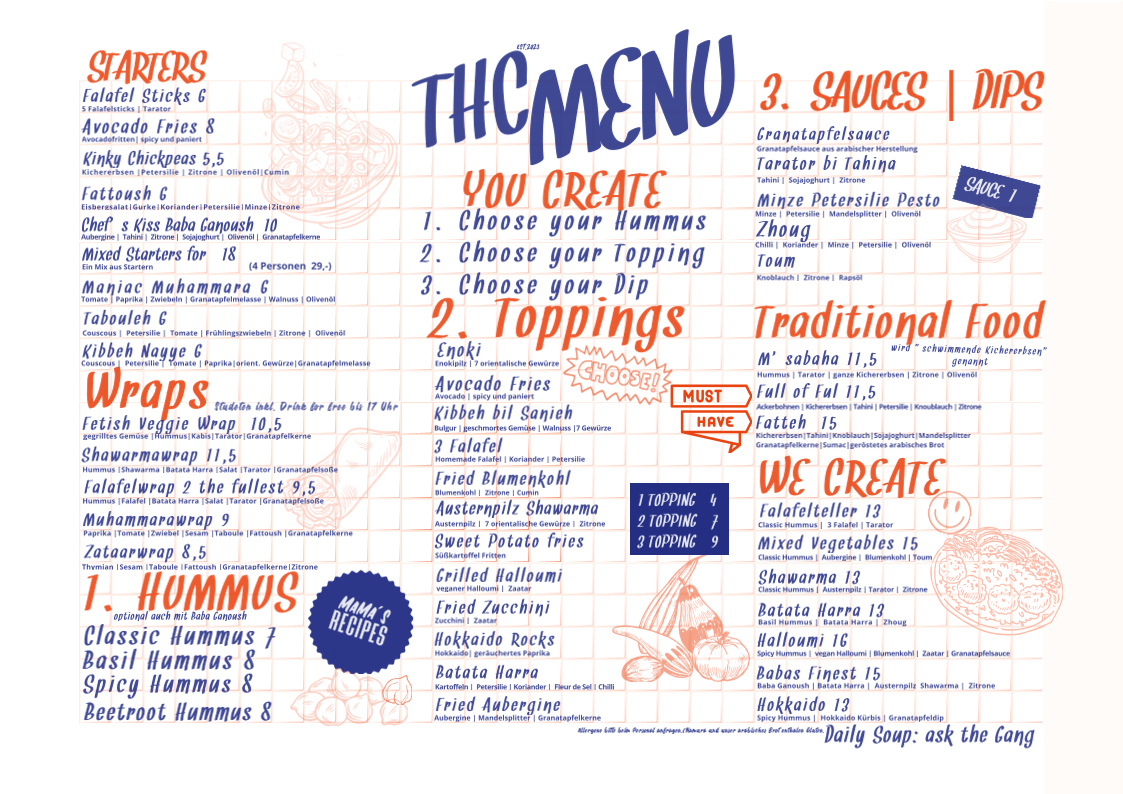 STARTERS
Falafel Sticks 6
5 Falafelsticks | Tarator
Avocado Fries 8
Avocadofritten| spicy und paniert
Kinky Chickpeas 5,5
Kichererbsen |Petersilie | Zitrone | Olivenöl|Cumin
Fattoush 6
Eisbergsalat|Gurke|Koriander|Petersilie|Minze|Zitrone
Chef' s Kiss Baba Ganoush 10
Aubergine | Tahini | Zitrone| Sojajoghurt | Olivenöl | Granatapfelkerne
Mixed Starters for 18
Ein Mix aus Startern (4 Personen 29,-)
Maniac Muhammara 6
Tomate | Paprika | Zwiebeln | Granatapfelmelasse | Walnuss | Olivenöl
Tabouleh 6
Couscous | Petersilie | Tomate | Frühlingszwiebeln | Zitrone | Olivenöl
Kibbeh Nayye 6
Couscous | Petersilie | Tomate | Paprika|orient. Gewürze|Granatapfelmelasse
Wraps
Studeten inkl. Drink for free bis 17 Uhr
Fetish Veggie Wrap 10,5
gegrilltes Gemüse |Hummus|Kabis|Tarator|Granatapfelkerne
Shawarmawrap 11,5
Hummus |Shawarma |Batata Harra |Salat |Tarator |Granatapfelsoße
Falafelwrap 2 the fullest 9,5
Hummus |Falafel |Batata Harra |Salat |Tarator |Granatapfelsoße
Muhammarawrap 9
Paprika |Tomate |Zwiebel |Sesam |Taboule |Fattoush |Granatapfelkerne
Zataarwrap 8,5
Thymian |Sesam |Taboule |Fattoush |Granatapfelkerne|Zitrone
1. HUMMUS
optional auch mit Baba Ganoush
Classic Hummus 7
Basil Hummus 8
Spicy Hummus 8
Beetroot Hummus 8
MAMA'S
RECIPES
EST.2023
THC MENU
YOU CREATE
1. Choose your Hummus
2. Choose your Topping
3. Choose your Dip
2. Toppings
Enoki
Enokipilz | 7 orientalische Gewürze
CHOOSE!
Avocado Fries
Avocado | spicy und paniert
Kibbeh bil Sanieh
Bulgur | geschmortes Gemüse | Walnuss |7 Gewürze
3 Falafel
Homemade Falafel | Koriander | Petersilie
Fried Blumenkohl
Blumenkohl | Zitrone | Cumin
Austernpilz Shawarma
Austernpilz | 7 orientalische Gewürze | Zitrone
Sweet Potato fries
Süßkartoffel Fritten
Grilled Halloumi
veganer Halloumi | Zaatar
Fried Zucchini
Zucchini | Zaatar
Hokkaido Rocks
Hokkaido| geräuchertes Paprika
Batata Harra
Kartoffeln | Petersilie | Koriander | Fleur de Sel | Chilli
Fried Aubergine
Aubergine | Mandelsplitter | Granatapfelkerne
MUST
HAVE
1 TOPPING 4
2 TOPPING 7
3 TOPPING 9
3. SAUCES | DIPS
Granatapfelsauce
Granatapfelsauce aus arabischer Herstellung
Tarator bi Tahina
Tahini | Sojajoghurt | Zitrone
SAUCE 1
Minze Petersilie Pesto
Minze | Petersilie | Mandelsplitter | Olivenöl
Zhoug
Chilli | Koriander | Minze | Petersilie | Olivenöl
Toum
Knoblauch | Zitrone | Rapsöl
Traditional Food
wird " schwimmende Kichererbsen"
genannt
M' sabaha 11,5
Hummus | Tarator | ganze Kichererbsen | Zitrone | Olivenöl
Full of Ful 11,5
Ackerbohnen | Kichererbsen | Tahini | Petersilie | Knoublauch | Zitrone
Fatteh 15
Kichererbsen|Tahini|Knoblauch|Sojajoghurt|Mandelsplitter
Granatapfelkerne|Sumac|geröstetes arabisches Brot
WE CREATE
Falafelteller 13
Classic Hummus | 3 Falafel | Tarator
Mixed Vegetables 15
Classic Hummus | Aubergine | Blumenkohl | Toum
Shawarma 13
Classic Hummus | Austernpilz | Tarator | Zitrone
Batata Harra 13
Basil Hummus | Batata Harra | Zhoug
Halloumi 16
Spicy Hummus | vegan Halloumi | Blumenkohl | Zaatar | Granatapfelsauce
Babas Finest 15
Baba Ganoush | Batata Harra | Austernpilz Shawarma | Zitrone
Hokkaido 13
Spicy Hummus | Hokkaido Kürbis | Granatapfeldip
Allergene bitte beim Personal anfragen. und unser arabisches Brot enthalten Gluten.
Daily Soup: ask the Gang